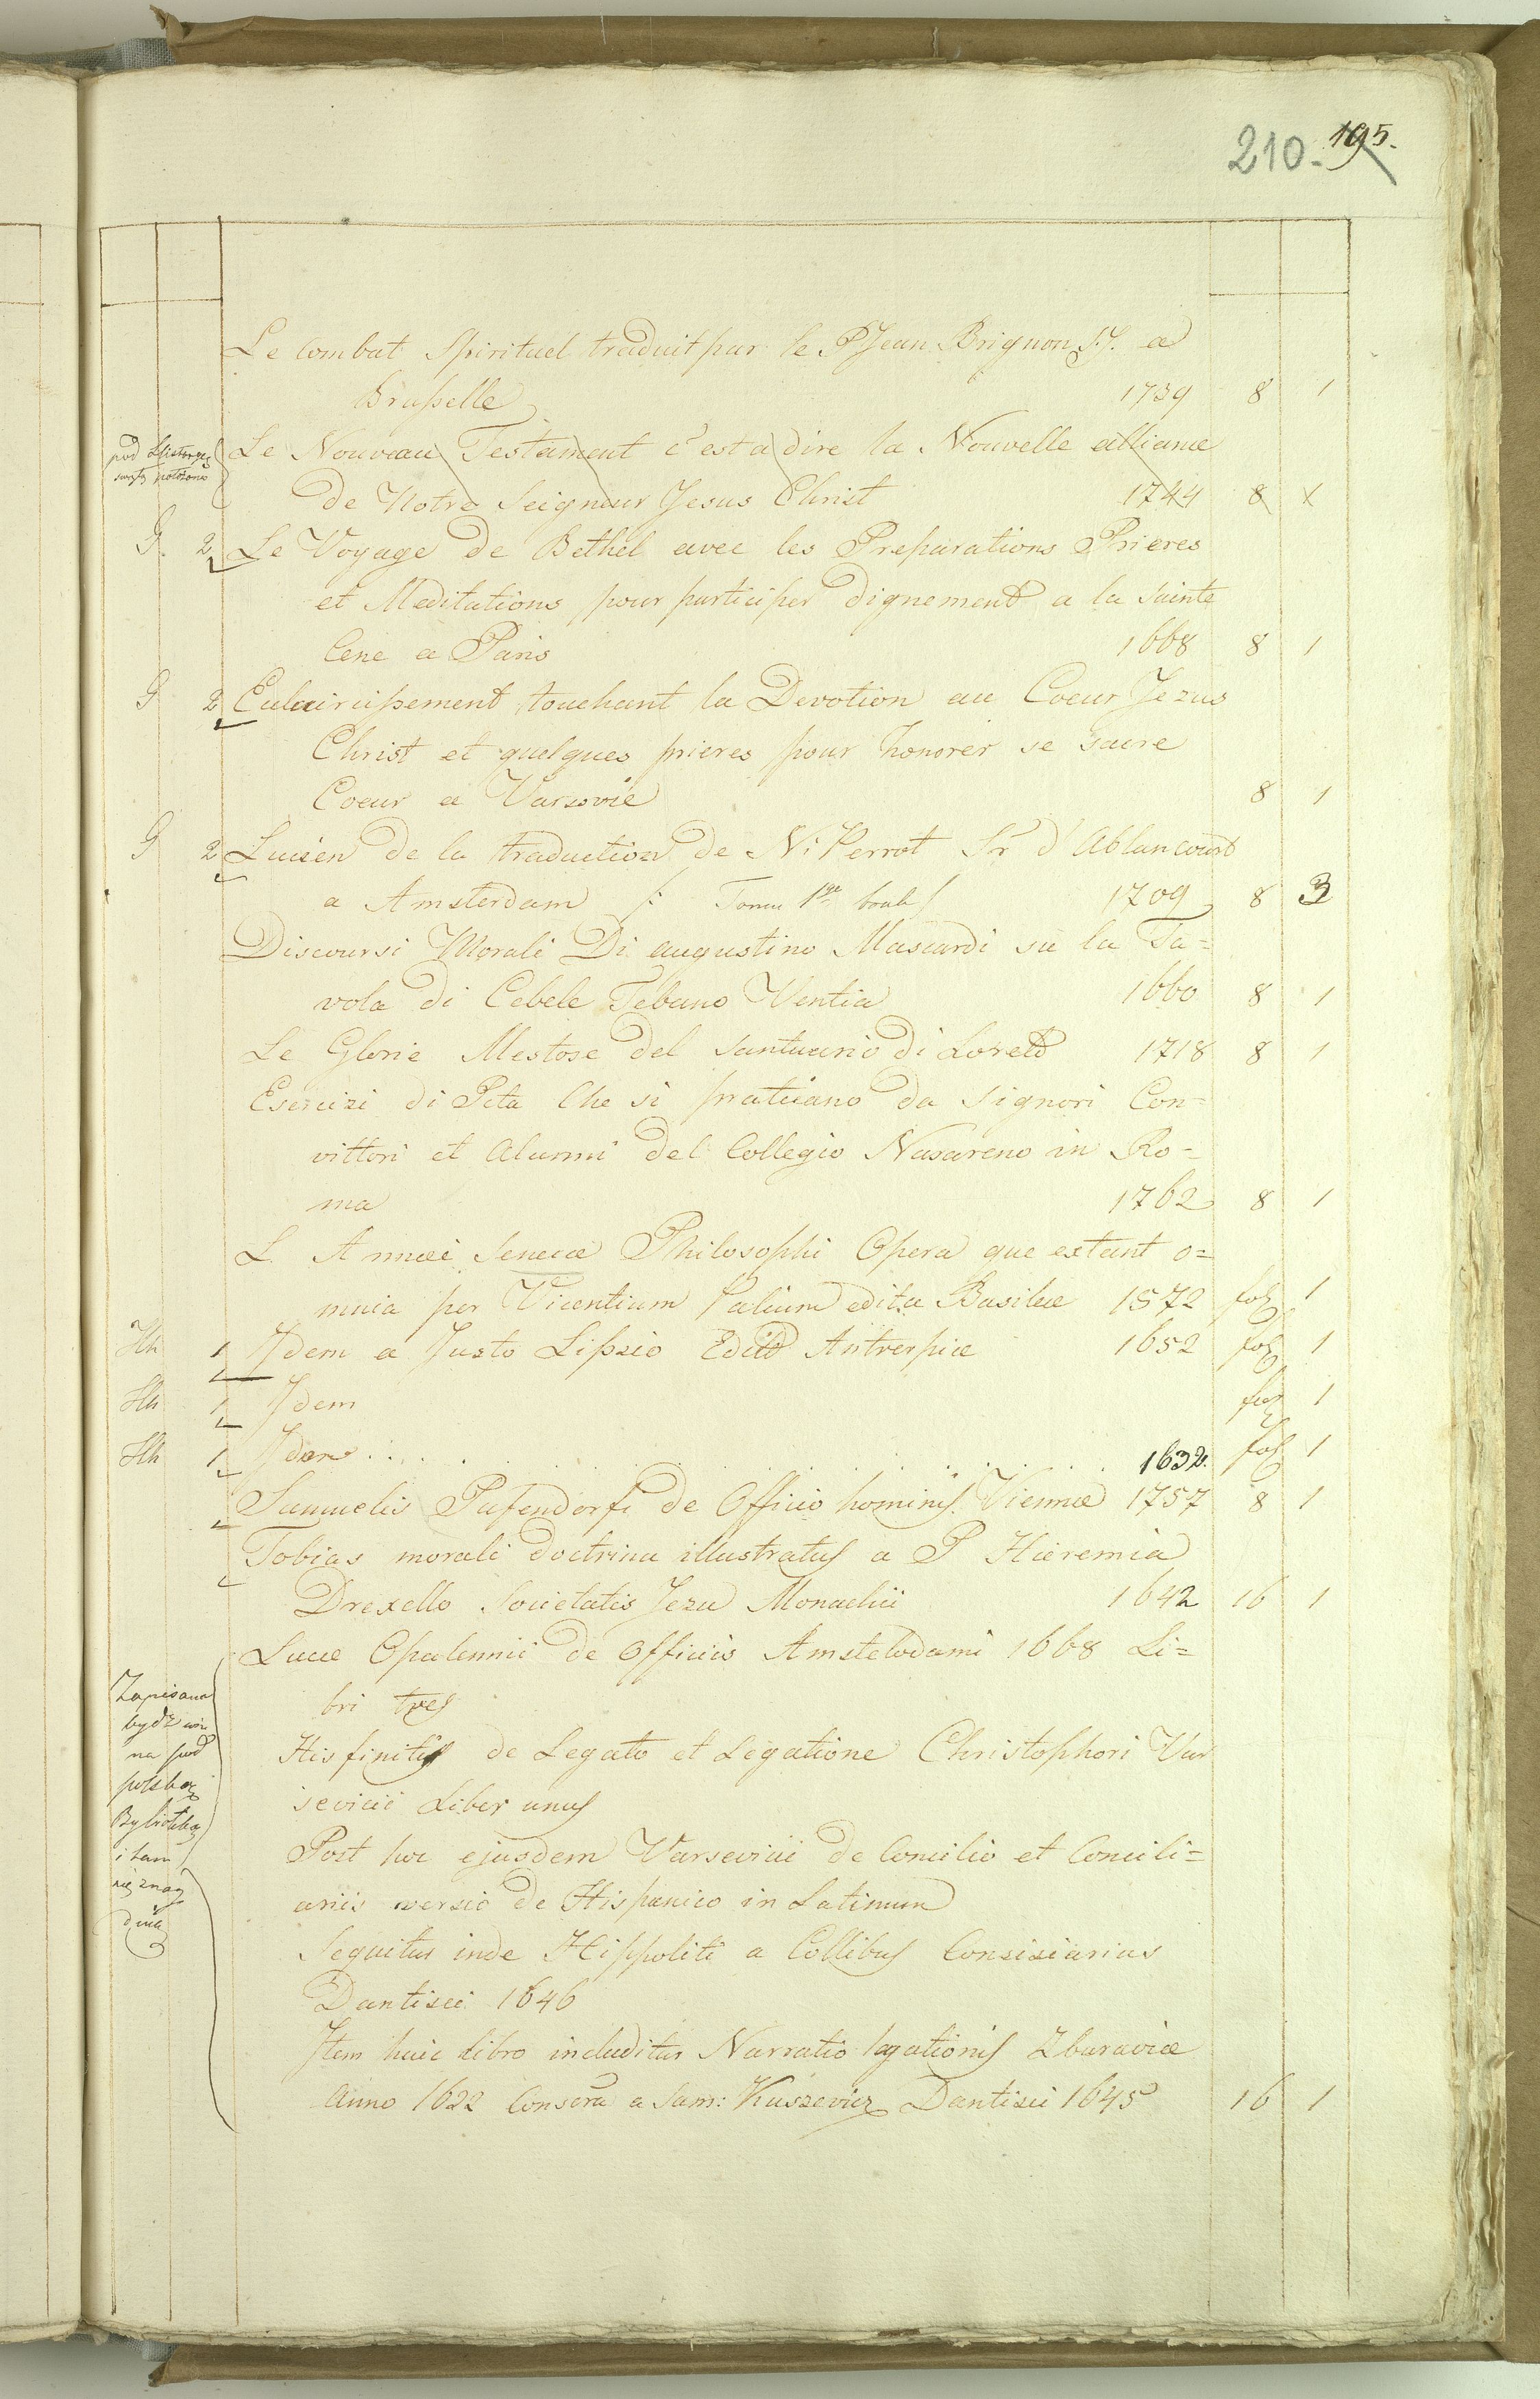 210. 195.
Le Combat Spirituel traduit par le P Jean Brignon S.J. a
Brusselle 1739 8 1
pod Historyą
świętą położono
Le Nouveau Testament c'est a dire la Nouvelle alliance
de Notre Seigneur Jesus Christ 1744 8 1
G. 2 Le Voyage de Bethel avec les Preparations Prieres
et Meditations pour participer dignement a la Sainte
Cene a Paris 1668 8 1
G 2 Eclaircissement touchant la Devotion au Coeur Jezus
Christ et quelques prieres pour honorer se sacre
Coeur a Varsovie 8 1
G 2 Lucien de la traduction de N: Perrot Sr d'Ablancourt
a Amsterdam 1709 8 3
Discoursi Morali Di augustino Mascardi su la Ta=
vola di Cebele Tebano Ventia 1660 8 1
Le Glorie Mestose del Santuario di Loreto 1718 8 1
Esercizi di Pita Che si praticano da Signori Con=
vittori et Alunni del Collegio Nasareno in Ro=
ma 1762 8 1
L. Annaei Senecae Philosophi Opera que extant o=
mnia per Vicentium Palium edita Basileae 1572 fol 1
Hh 1 Idem a Justo Lipsio Edit Antverpiae 1652 fol 1
Hh 1 Idem fol 1
Hh 1 Idem 1632. fol 1
Samuelis Pufendorfi de Officio hominis Viennae 1757 8 1
Tobias morali doctrina illustratus a P Hieremia
Drexello Societatis Jezu Monachii 1642 16 1
Lucae Opalennii de Officiis Amstelodami 1668 Li=
bri tres
Zapisana
bydz win
na pod
polską
Bybioteką
i tam
się znay
duie
His finitis de Legato et Legatione Christophori Var
sevicii Liber unus
Post hoc ejusdem Varsevicii de Concilio et Concili=
ariis versio de Hispanico in Latinum
Sequitur inde Hippoliti a Collibus Consiziarius
Dantisci 1646
Item huic libro includitur Narratio legationis Zbaraviae
Anno 1622 Conscra a Sam: Kuszewicz Dantisci 1645 16 1